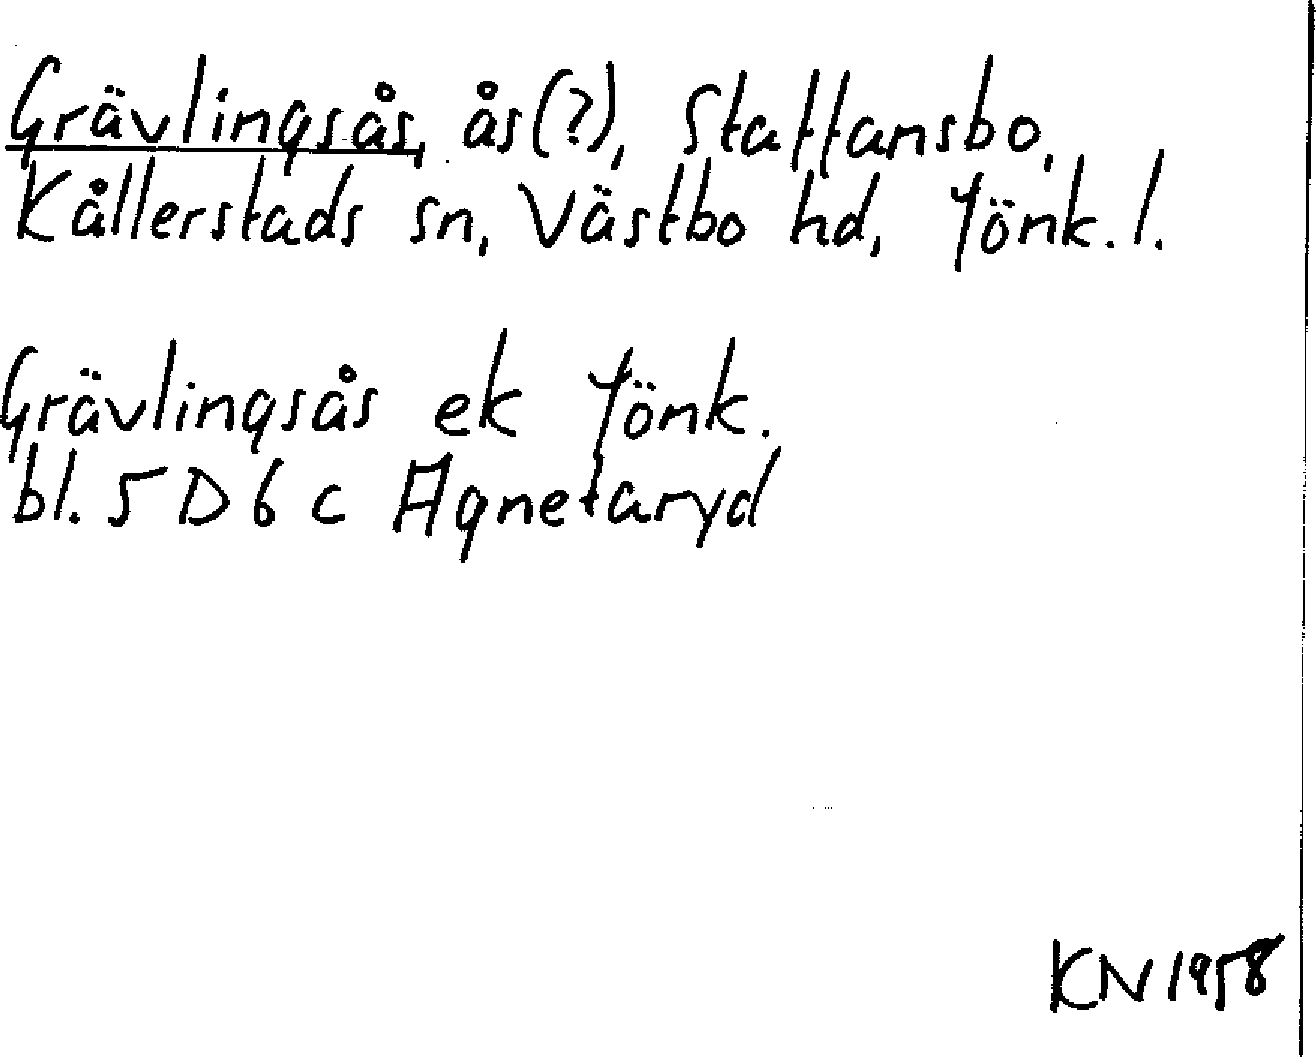 Grävlingsås, ås(?), Staffansbo,
Kållerstads sn, Västbo hd, Jönk. l.
Grävlingsås ek Jönk.
bl. 5 D 6 c Agnetaryd
KN 1958